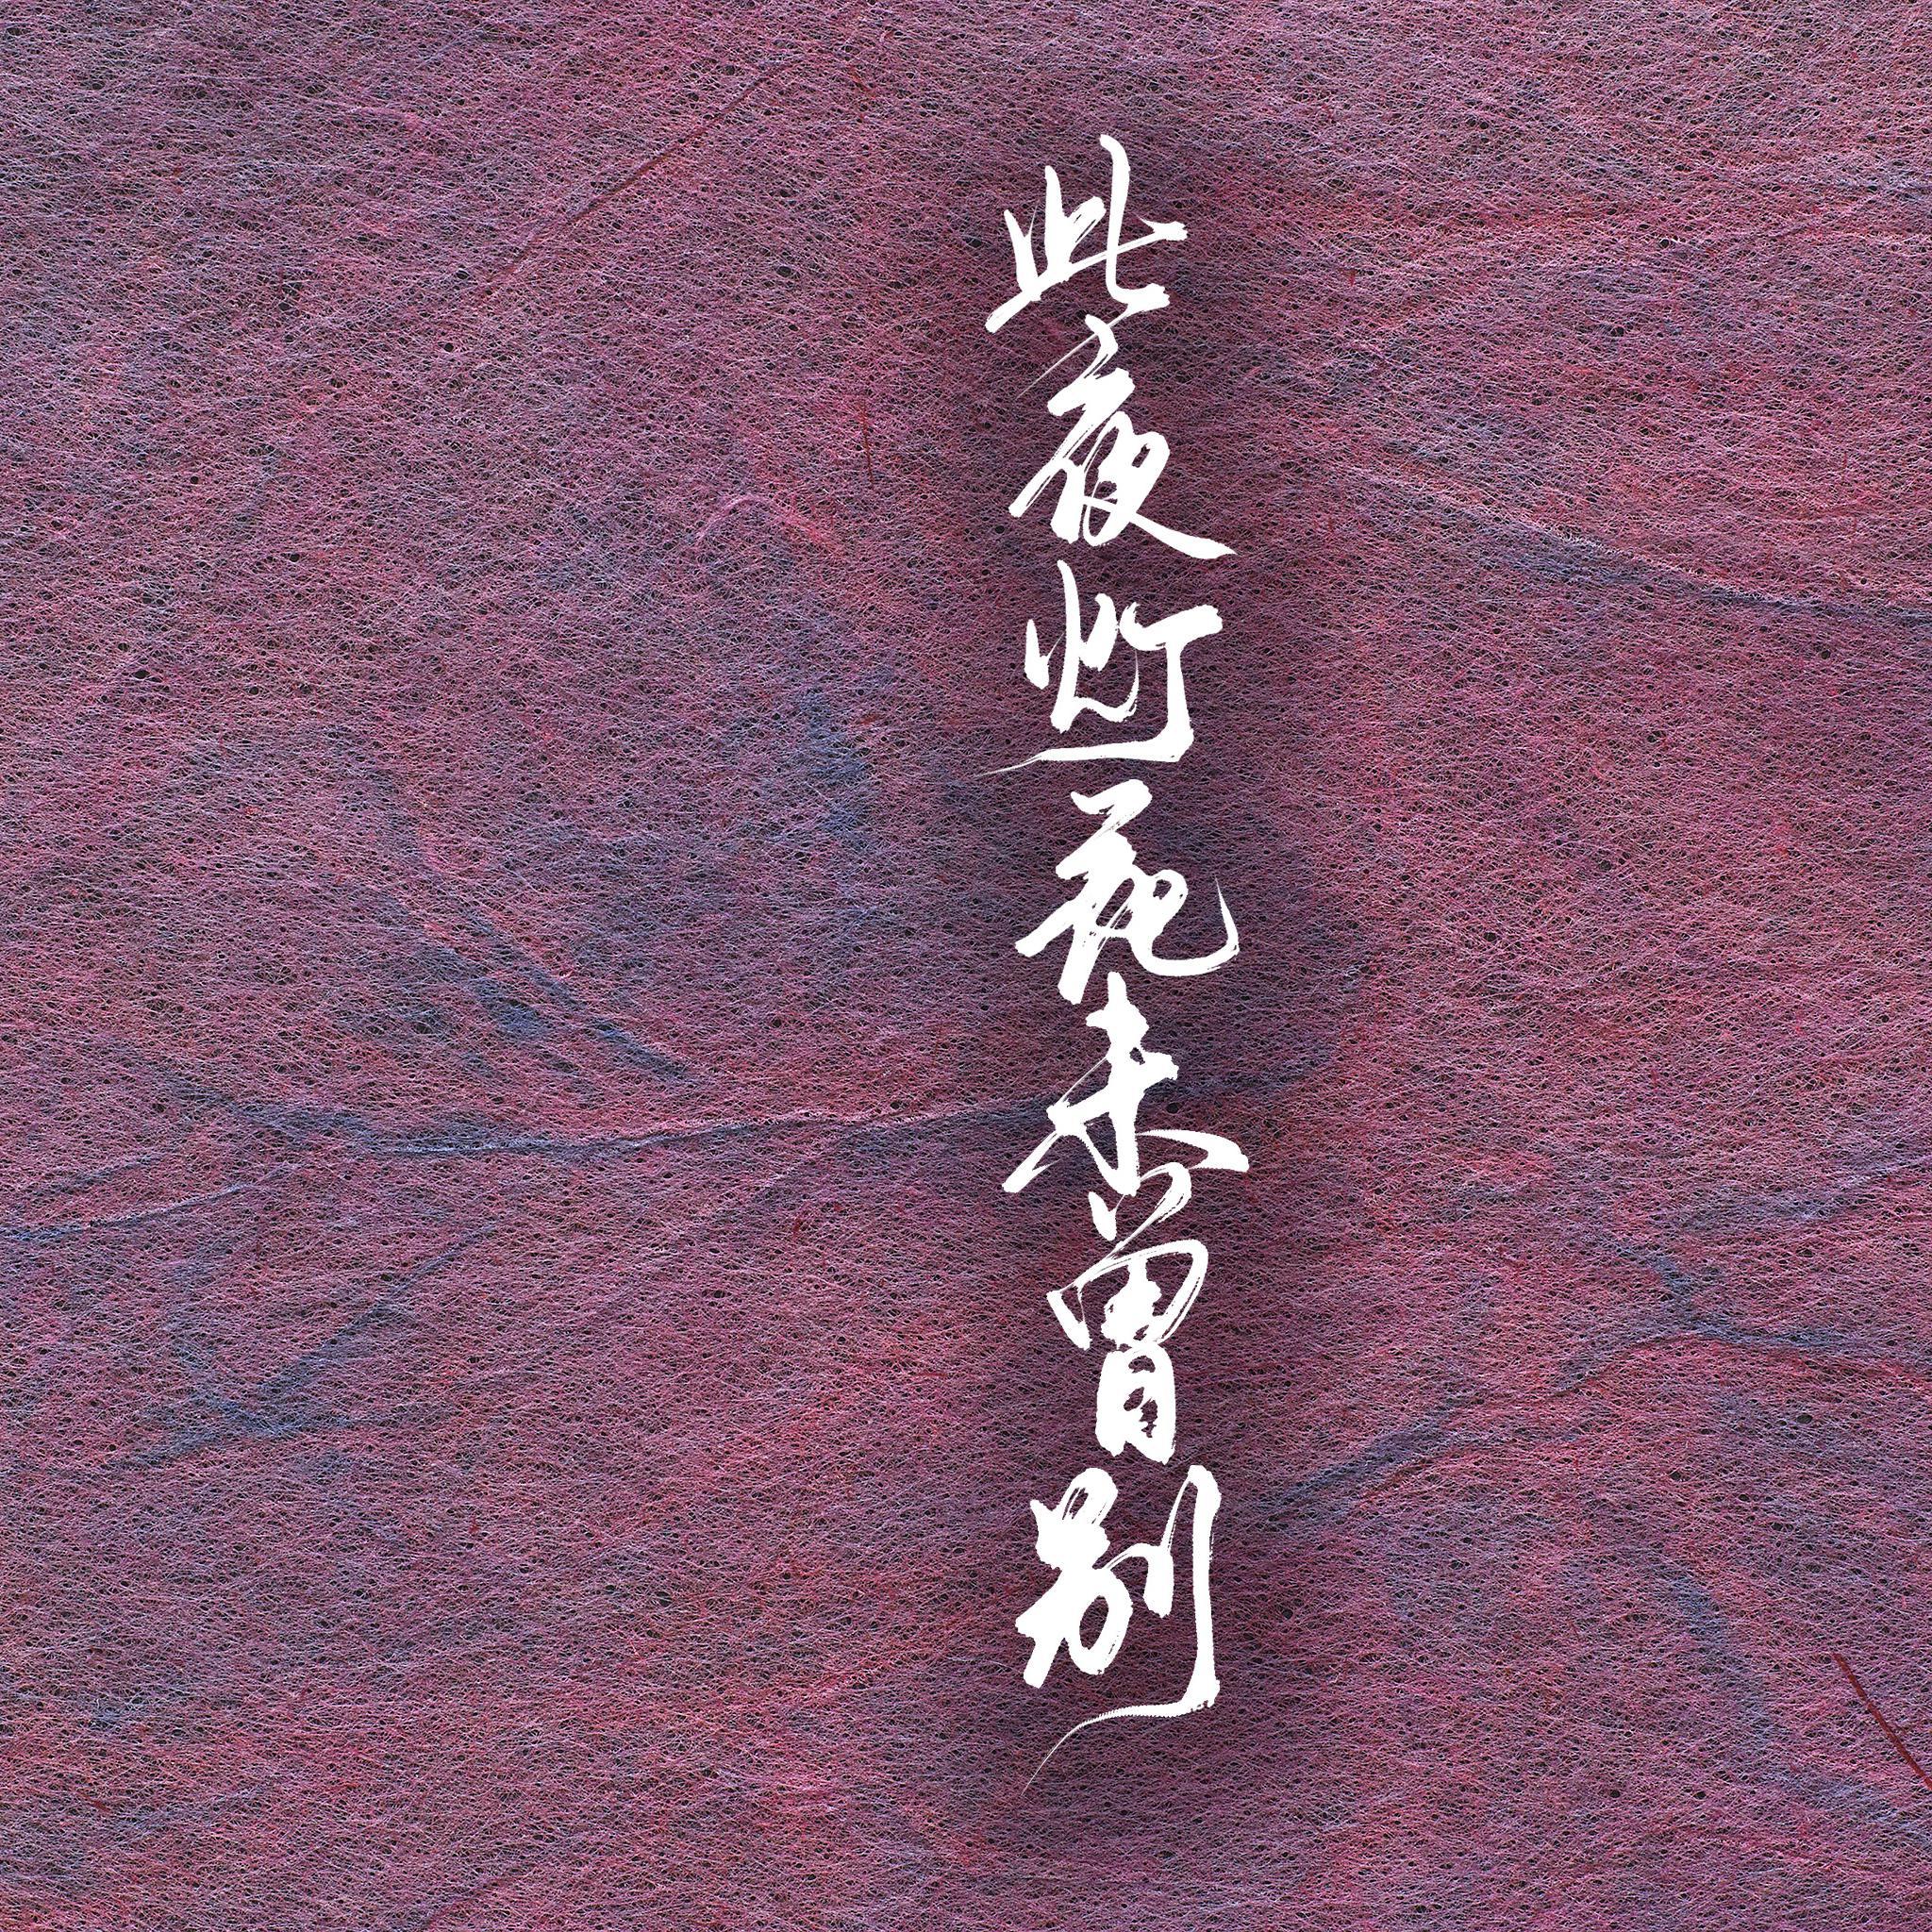 此夜灯花未曾别